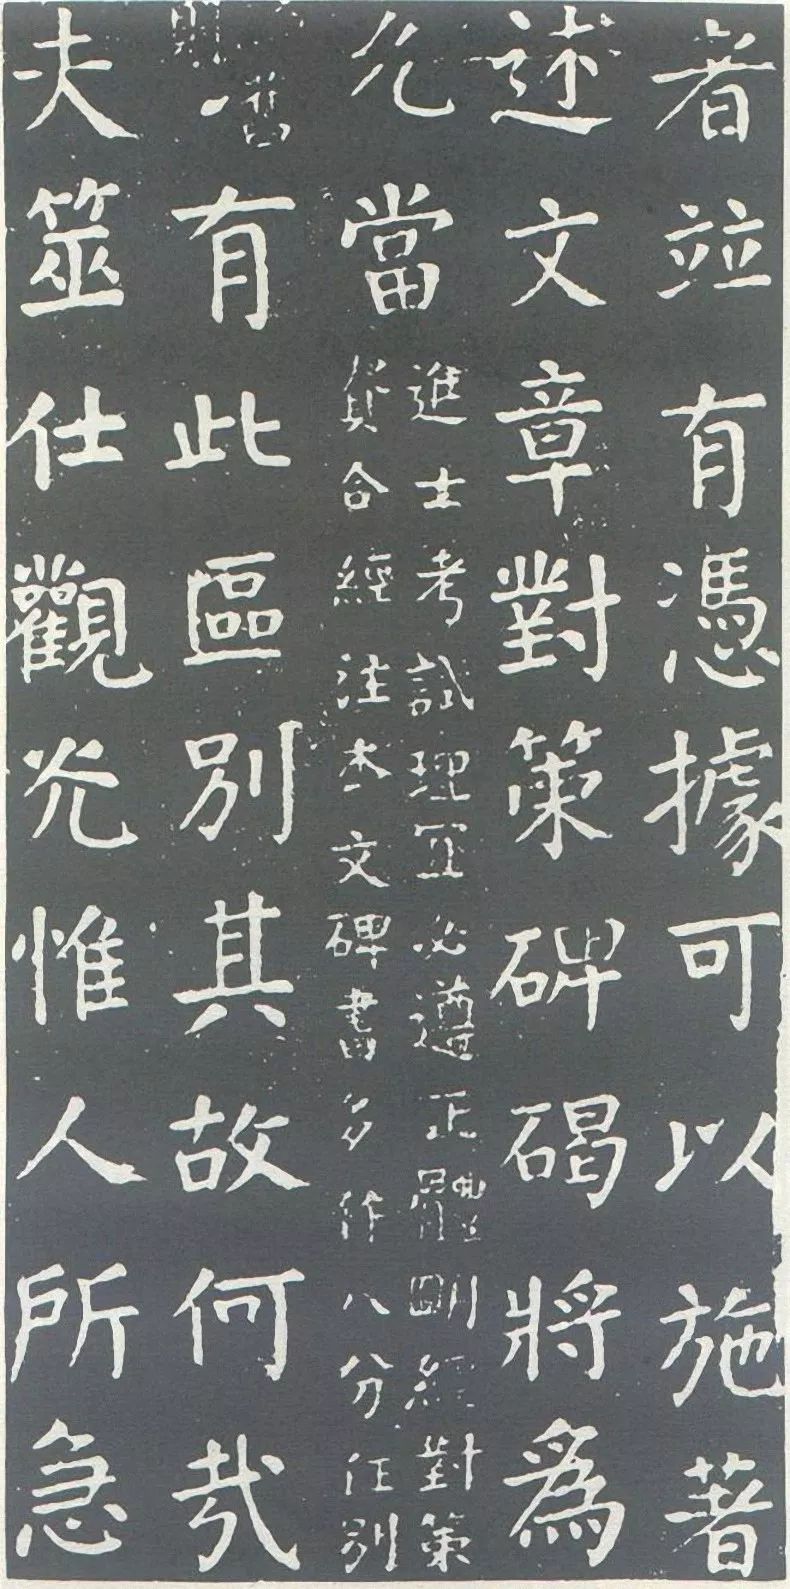 者竝有憑據可以施著
述文章對策碑碣將爲
允當
進士考試理宜必遵正體明經對策
貴合經注本文碑書多作八分任別
舊
則
有此區別其故何哉
夫筮仕觀光惟人所急